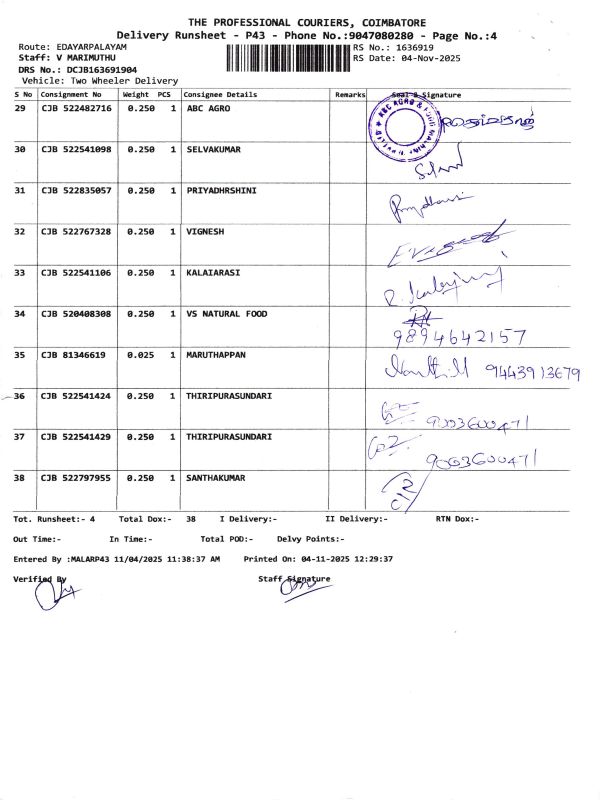 THE PROFESSIONAL COURIERS, COIMBATORE
Delivery Runsheet - P43 - Phone No.:9047080280 - Page No.:4
Route: EDAYARPALAYAM
RS No.: 1636919
Staff: V MARIMUTHU
RS Date: 04-Nov-2025
DRS No.: DCJB163691904
Vehicle: Two Wheeler Delivery
S No Consignment No Weight PCS Consignee Details Remarks Seal & Signature
29 CJB 522482716 0.250 1 ABC AGRO
30 CJB 522541098 0.250 1 SELVAKUMAR
31 CJB 522835057 0.250 1 PRIYADHRSHINI
32 CJB 522767328 0.250 1 VIGNESH
33 CJB 522541106 0.250 1 KALAIARASI
34 CJB 520408308 0.250 1 VS NATURAL FOOD
9894642157
35 CJB 81346619 0.025 1 MARUTHAPPAN 9443913679
36 CJB 522541424 0.250 1 THIRIPURASUNDARI
9003600471
37 CJB 522541429 0.250 1 THIRIPURASUNDARI
9003600471
38 CJB 522797955 0.250 1 SANTHAKUMAR
Tot. Runsheet:- 4 Total Dox:- 38 I Delivery:- II Delivery:- RTN Dox:-
Out Time:- In Time:- Total POD:- Delvy Points:-
Entered By :MALARP43 11/04/2025 11:38:37 AM Printed On: 04-11-2025 12:29:37
Verified By Staff Signature